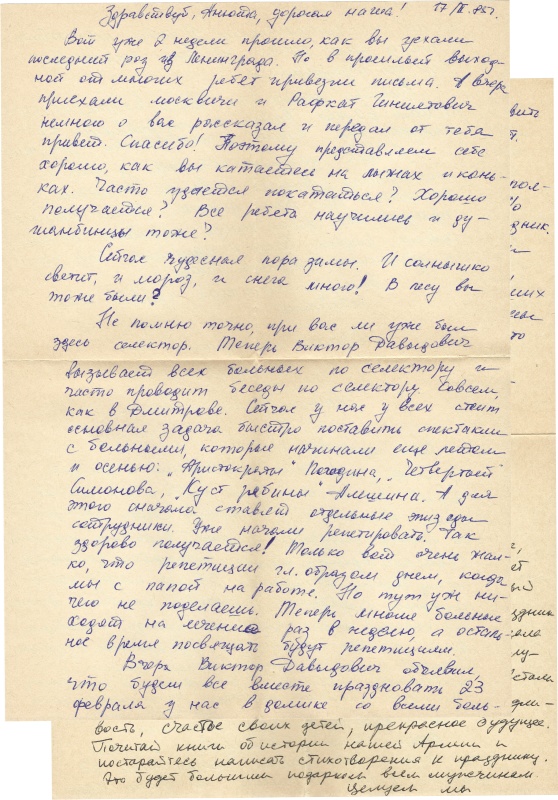 Здравствуй, Анюта, дорогая наша! 17/II 85 г.
Вот уже 2 недели прошло, как вы уехали
последний раз из Ленинграда. Но в прошлый выход-
ной от многих ребят привезли письма. А вчера
приехали москвичи и Рафкат
немного о вас рассказал и передал от тебя
привет. Спасибо! Поэтому представляем себе
хорошо, как вы катаетесь на лыжах и конь-
ках. Часто удается покататься? Хорошо
получается? Все ребята научились и ду-
шанбинцы тоже?
Сейчас чудесная пора зимы. И солнышко
светит, и мороз, и снега много! В лесу вы
тоже были?
Не помню точно, при вас ли уже был
здесь селектор. Теперь Виктор Давыдович
вызывает всех больных по селектору и
часто проводит беседы по селектору совсем,
как в Дмитрове. Сейчас у нас у всех стоит
основная задача быстро поставить спектакли
с больными, которые начинали еще летом
и осенью: „Аристократы" Погодина, „Четвертый"
Симонова, „Куст рябины" Алешина. А для
этого сначала ставят отдельные эпизоды
сотрудники. Уже начали репетировать. Так
здорово получается! Только вот очень жал-
ко, что репетиции гл. образом днем, когда
мы с папой на работе. Но тут уж ни-
чего не поделаешь. Теперь многие больные
ходят на лечение раз в неделю, а осталь-
ное время посвящать будут репетициям.
Вчера Виктор Давыдович объявил,
что будем все вместе праздновать 23
февраля у нас в домике со всеми боль-
вость, счастье своих детей, прекрасное будущее.
Почитай книги об истории нашей Армии и
постарайтесь написать стихотворения к празднику.
Это будет большим подарком всем мужчинам.
Целуем мы